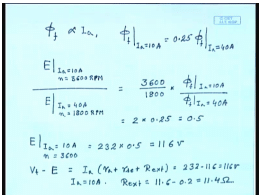 φ_f ∝ I_a, φ_f|_{I_a=10A} = 0.25 φ_f|_{I_a=40A}
E|_{I_a=10A, n=3600RPM} / E|_{I_a=40A, n=1800RPM} = 3600/1800 × φ_f|_{I_a=10A} / φ_f|_{I_a=40A}
= 2 × 0.25 = 0.5
E|_{I_a=10A, n=3600} = 232 × 0.5 = 116V
V_t - E = I_a (r_a + r_se + R_ext) = 232-116=116V
I_a=10A. R_ext = 11.6 - 0.2 = 11.4Ω